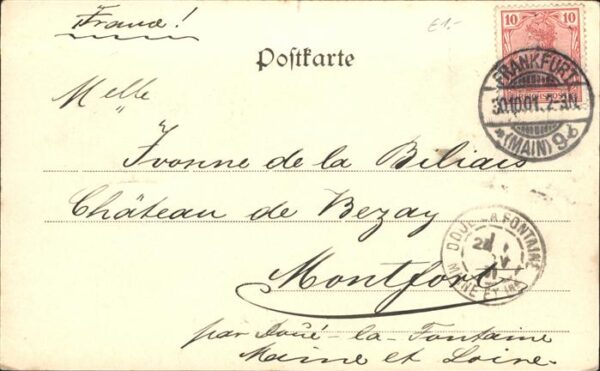 France!
€1.-
10 10
Postkarte
FRANKFURT
30.10.01. 2-3N.
*(MAIN) 9 b
Melle
Yvonne de la Biliais
Château de Bezay
Montfort
par Doué-la-Fontaine
Maine et Loire.
DOUÉ-LA-FONTAINE
MAINE ET